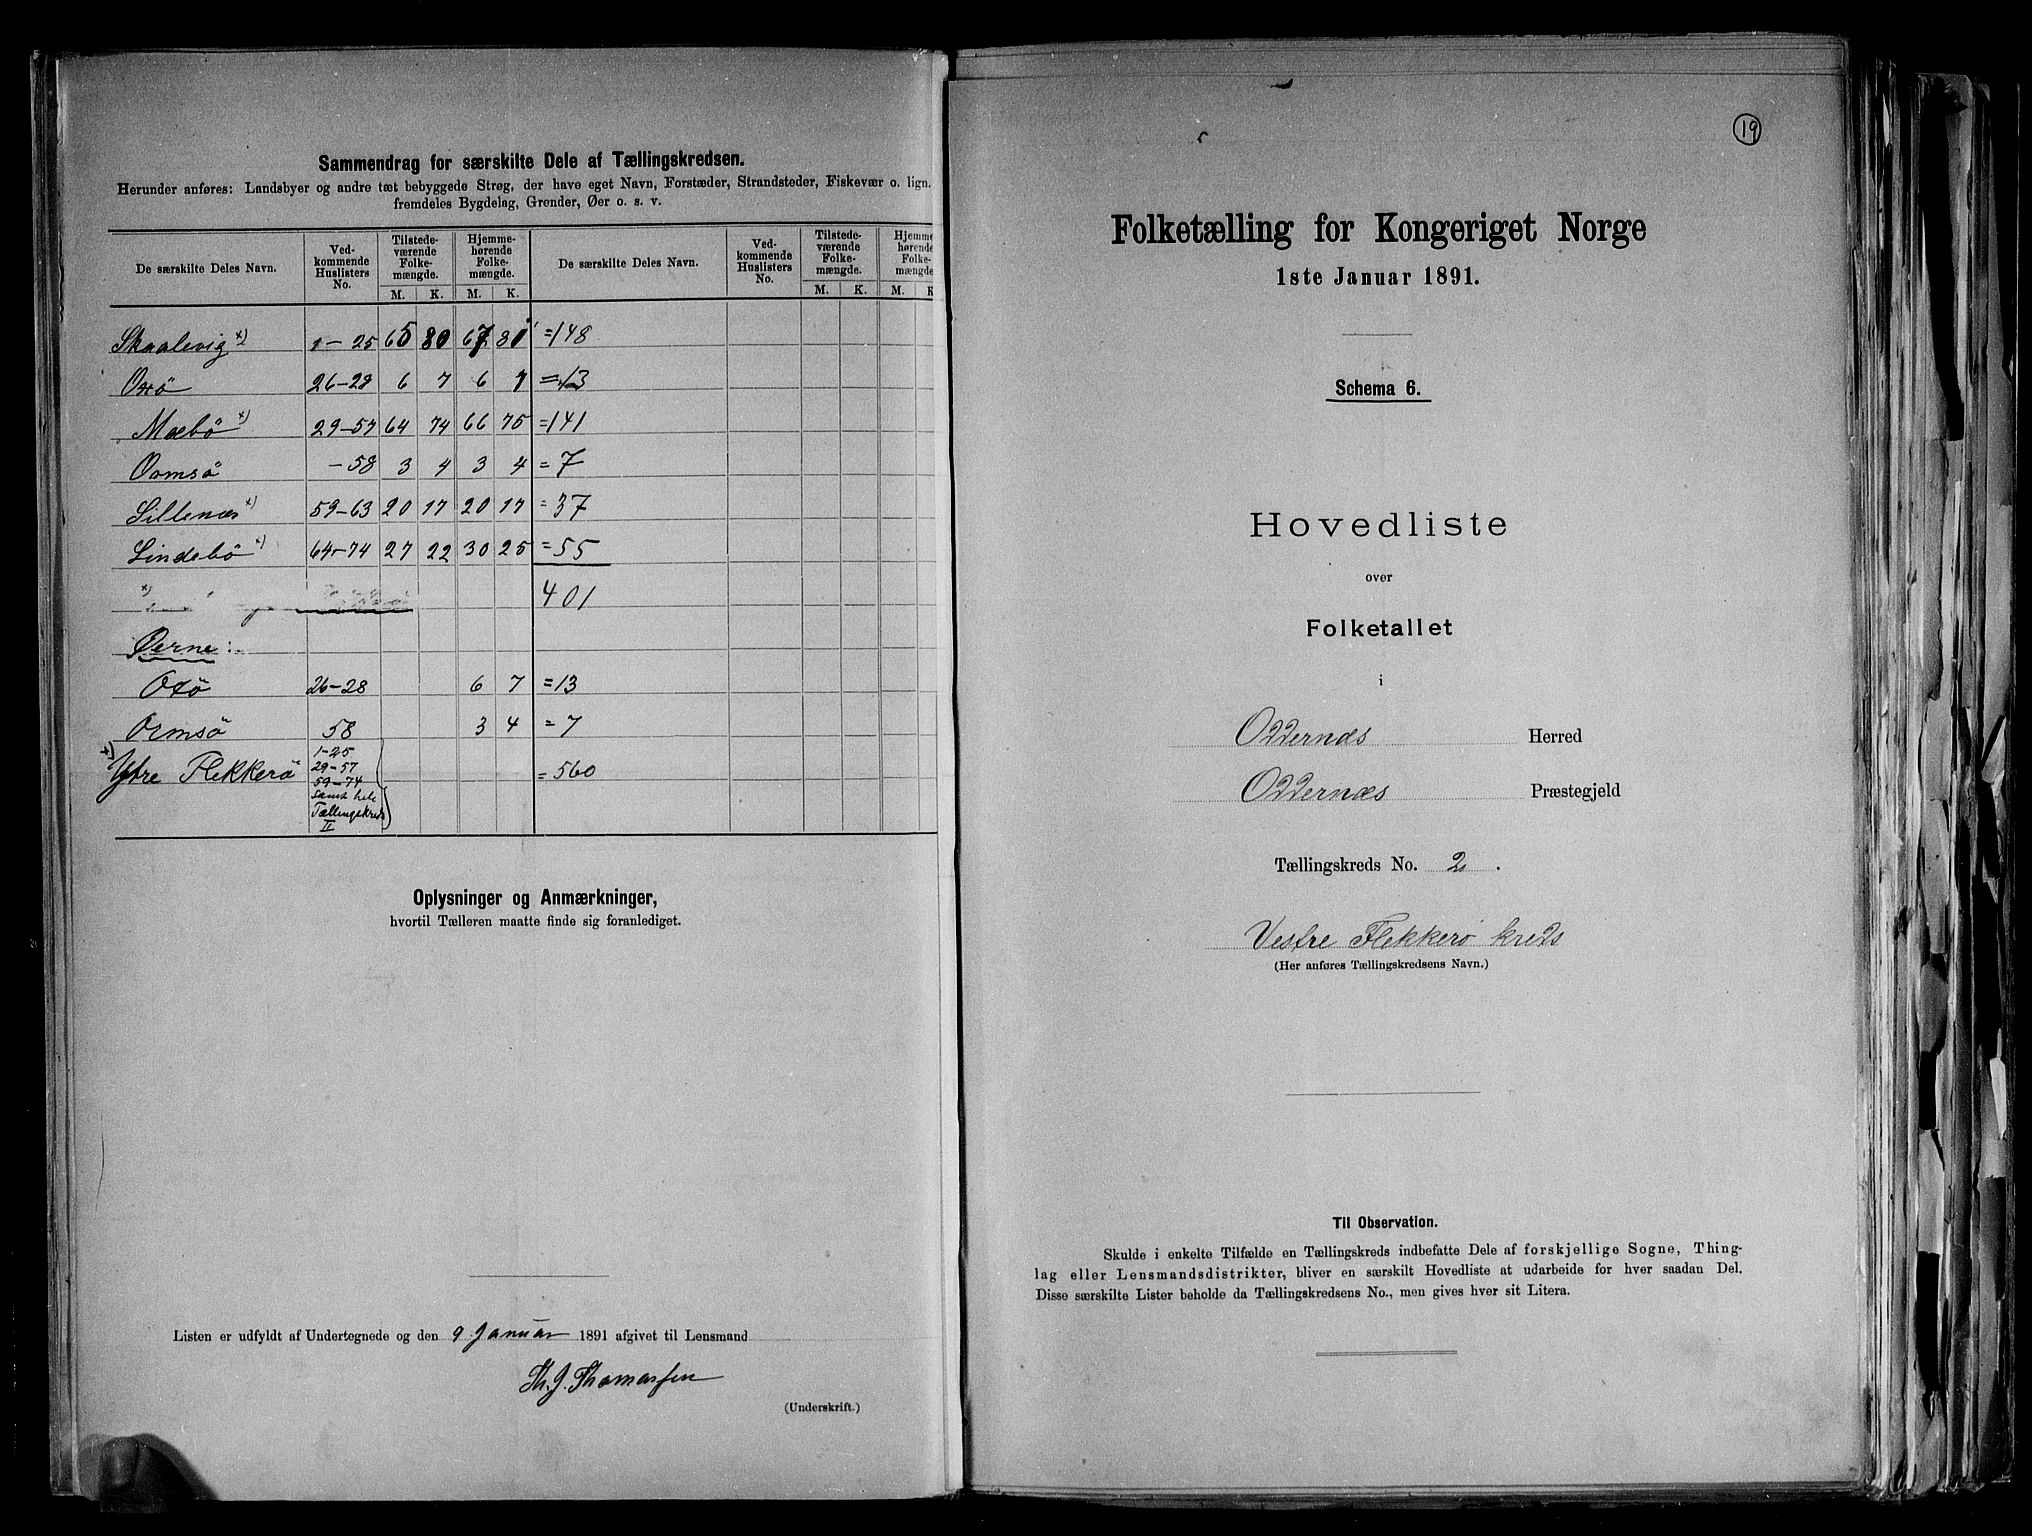 Sammendrag for særskilte Dele af Tællingskredsen.
Herunder anføres: Landsbyer og andre tæt bebyggede Strøg, der have eget Navn, Forstæder, Strandsteder, Fiskevær o. lign.
fremdeles Bygdelag, Grender, Øer o. s. v.
De særskilte Deles Navn. Ved-kommende Huslisters No. Tilstede-værende Folke-mængde. Hjemme-hørende Folke-mængde. De særskilte Deles Navn. Ved-kommende Huslisters No. Tilstede-værende Folke-mængde. Hjemme-hørende Folke-mængde
M. K. M. K. M. K. M. K
Skaalevig x) 1-25 65 80 67 81 =148
Oxö 26-28 6 7 6 7 =13
Mæbö x) 29-57 64 74 66 75 =141
Oomsö -58 3 4 3 4 =7
Sillenæs x) 59-63 20 17 20 17 =37
Lindebö x) 64-74 27 22 30 25 =55
x) 401
Øerne:
Oxö 26-28 6 7 =13
Ormsö 58 3 4 =7
x) Ytre Flekkerö 1-25 =560
29-57
59-74
samt hele
Tællingskreds
II
Oplysninger og Anmærkninger,
hvortil Tælleren maatte finde sig foranlediget.
Listen er udfyldt af Undertegnede og den 9 Januar 1891 afgivet til Lensmand
Th. J. Thomassen
(Underskrift.)
19
Folketælling for Kongeriget Norge
1ste Januar 1891.
Schema 6.
Hovedliste
over
Folketallet
i
Oddernæs Herred
Oddernæs Præstegjeld
Tællingskreds No. 2.
Vestre Flekkerö kreds
(Her anføres Tællingskredsens Navn.)
Til Observation.
Skulde i enkelte Tilfælde en Tællingskreds indbefatte Dele af forskjellige Sogne, Thing-
lag eller Lensmandsdistrikter, bliver en særskilt Hovedliste at udarbeide for hver saadan Del.
Disse særskilte Lister beholde da Tællingskredsens No., men gives hver sit Litera.